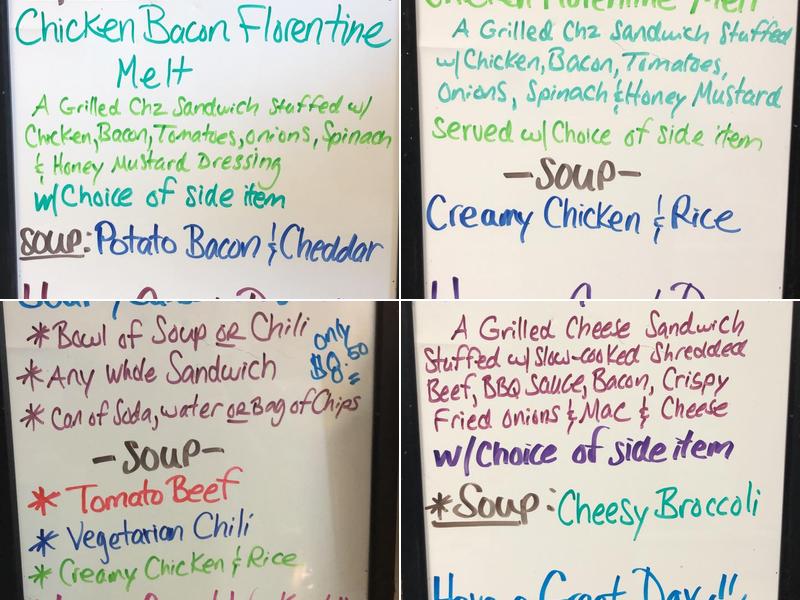 Chicken Bacon Florentine
Melt
A Grilled Chz Sandwich Stuffed w/
Chicken, Bacon, Tomatoes, onions, Spinach
& Honey Mustard Dressing
w/Choice of side item
Soup: Potato Bacon & Cheddar
Chicken Florentine Melt
A Grilled Chz Sandwich Stuffed
w/Chicken, Bacon, Tomatoes,
Onions, Spinach & Honey Mustard
Served w/Choice of side item
-Soup-
Creamy Chicken & Rice
*Bowl of Soup OR Chili
*Any whole Sandwich
*Can of Soda, water OR Bag of Chips
only
$8.50
-Soup-
* Tomato Beef
* Vegetarian Chili
* Creamy Chicken & Rice
A Grilled Cheese Sandwich
Stuffed w/ Slow-cooked Shredded
Beef, BBQ Sauce, Bacon, Crispy
Fried onions & Mac & Cheese
w/Choice of side item
*Soup: Cheesy Broccoli
Have a Great Day!!